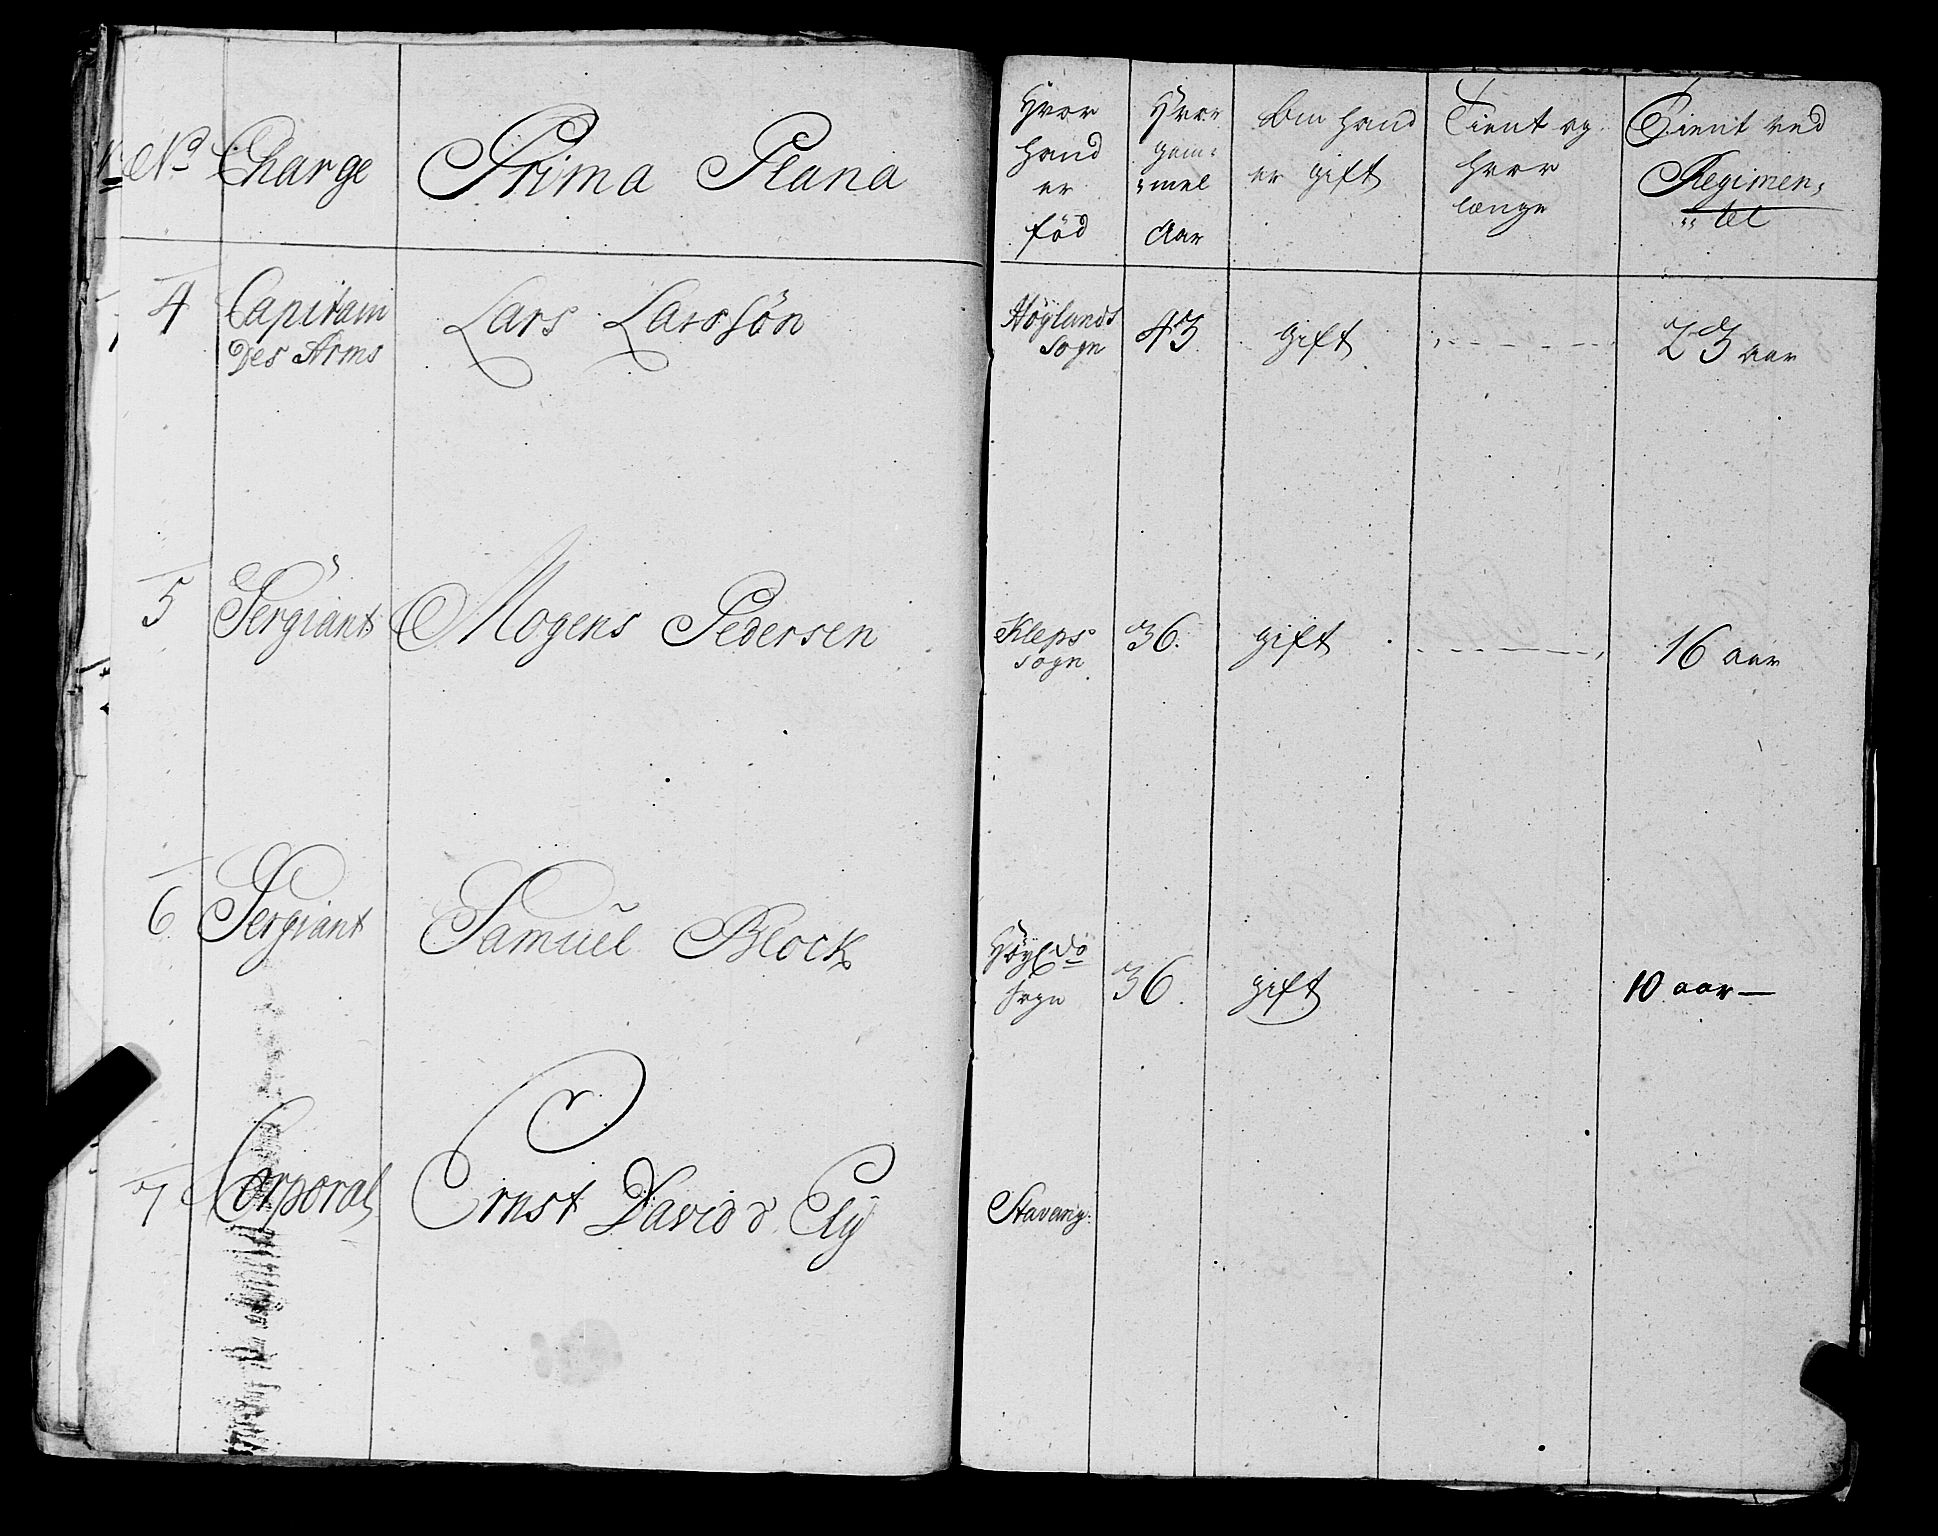 No Charge Prima Plana
Hvor
hand
er
fød
Hvor
gam=
=mel
Aar
Om hand
er gift
Tient og
hvor
længe
Tient ved
Regimen=
=tet
4 Capitain
Des Arms
Lars Larssön
Höylands
Sogn
43
gift
23 aar
5 Sergiant Mogens Pedersen
Kleps
Sogn
36.
gift
16 aar
6 Sergiant Samuel Block
Sogn
36.
gift
10 aar
7 Corporal Ernst David d
Stavang: